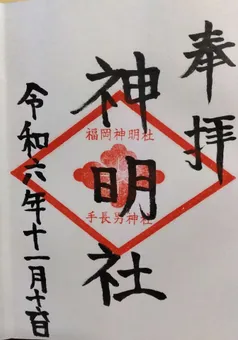 奉拝
神明社
福岡神明社
手長男神社
令和六年十一月十六日